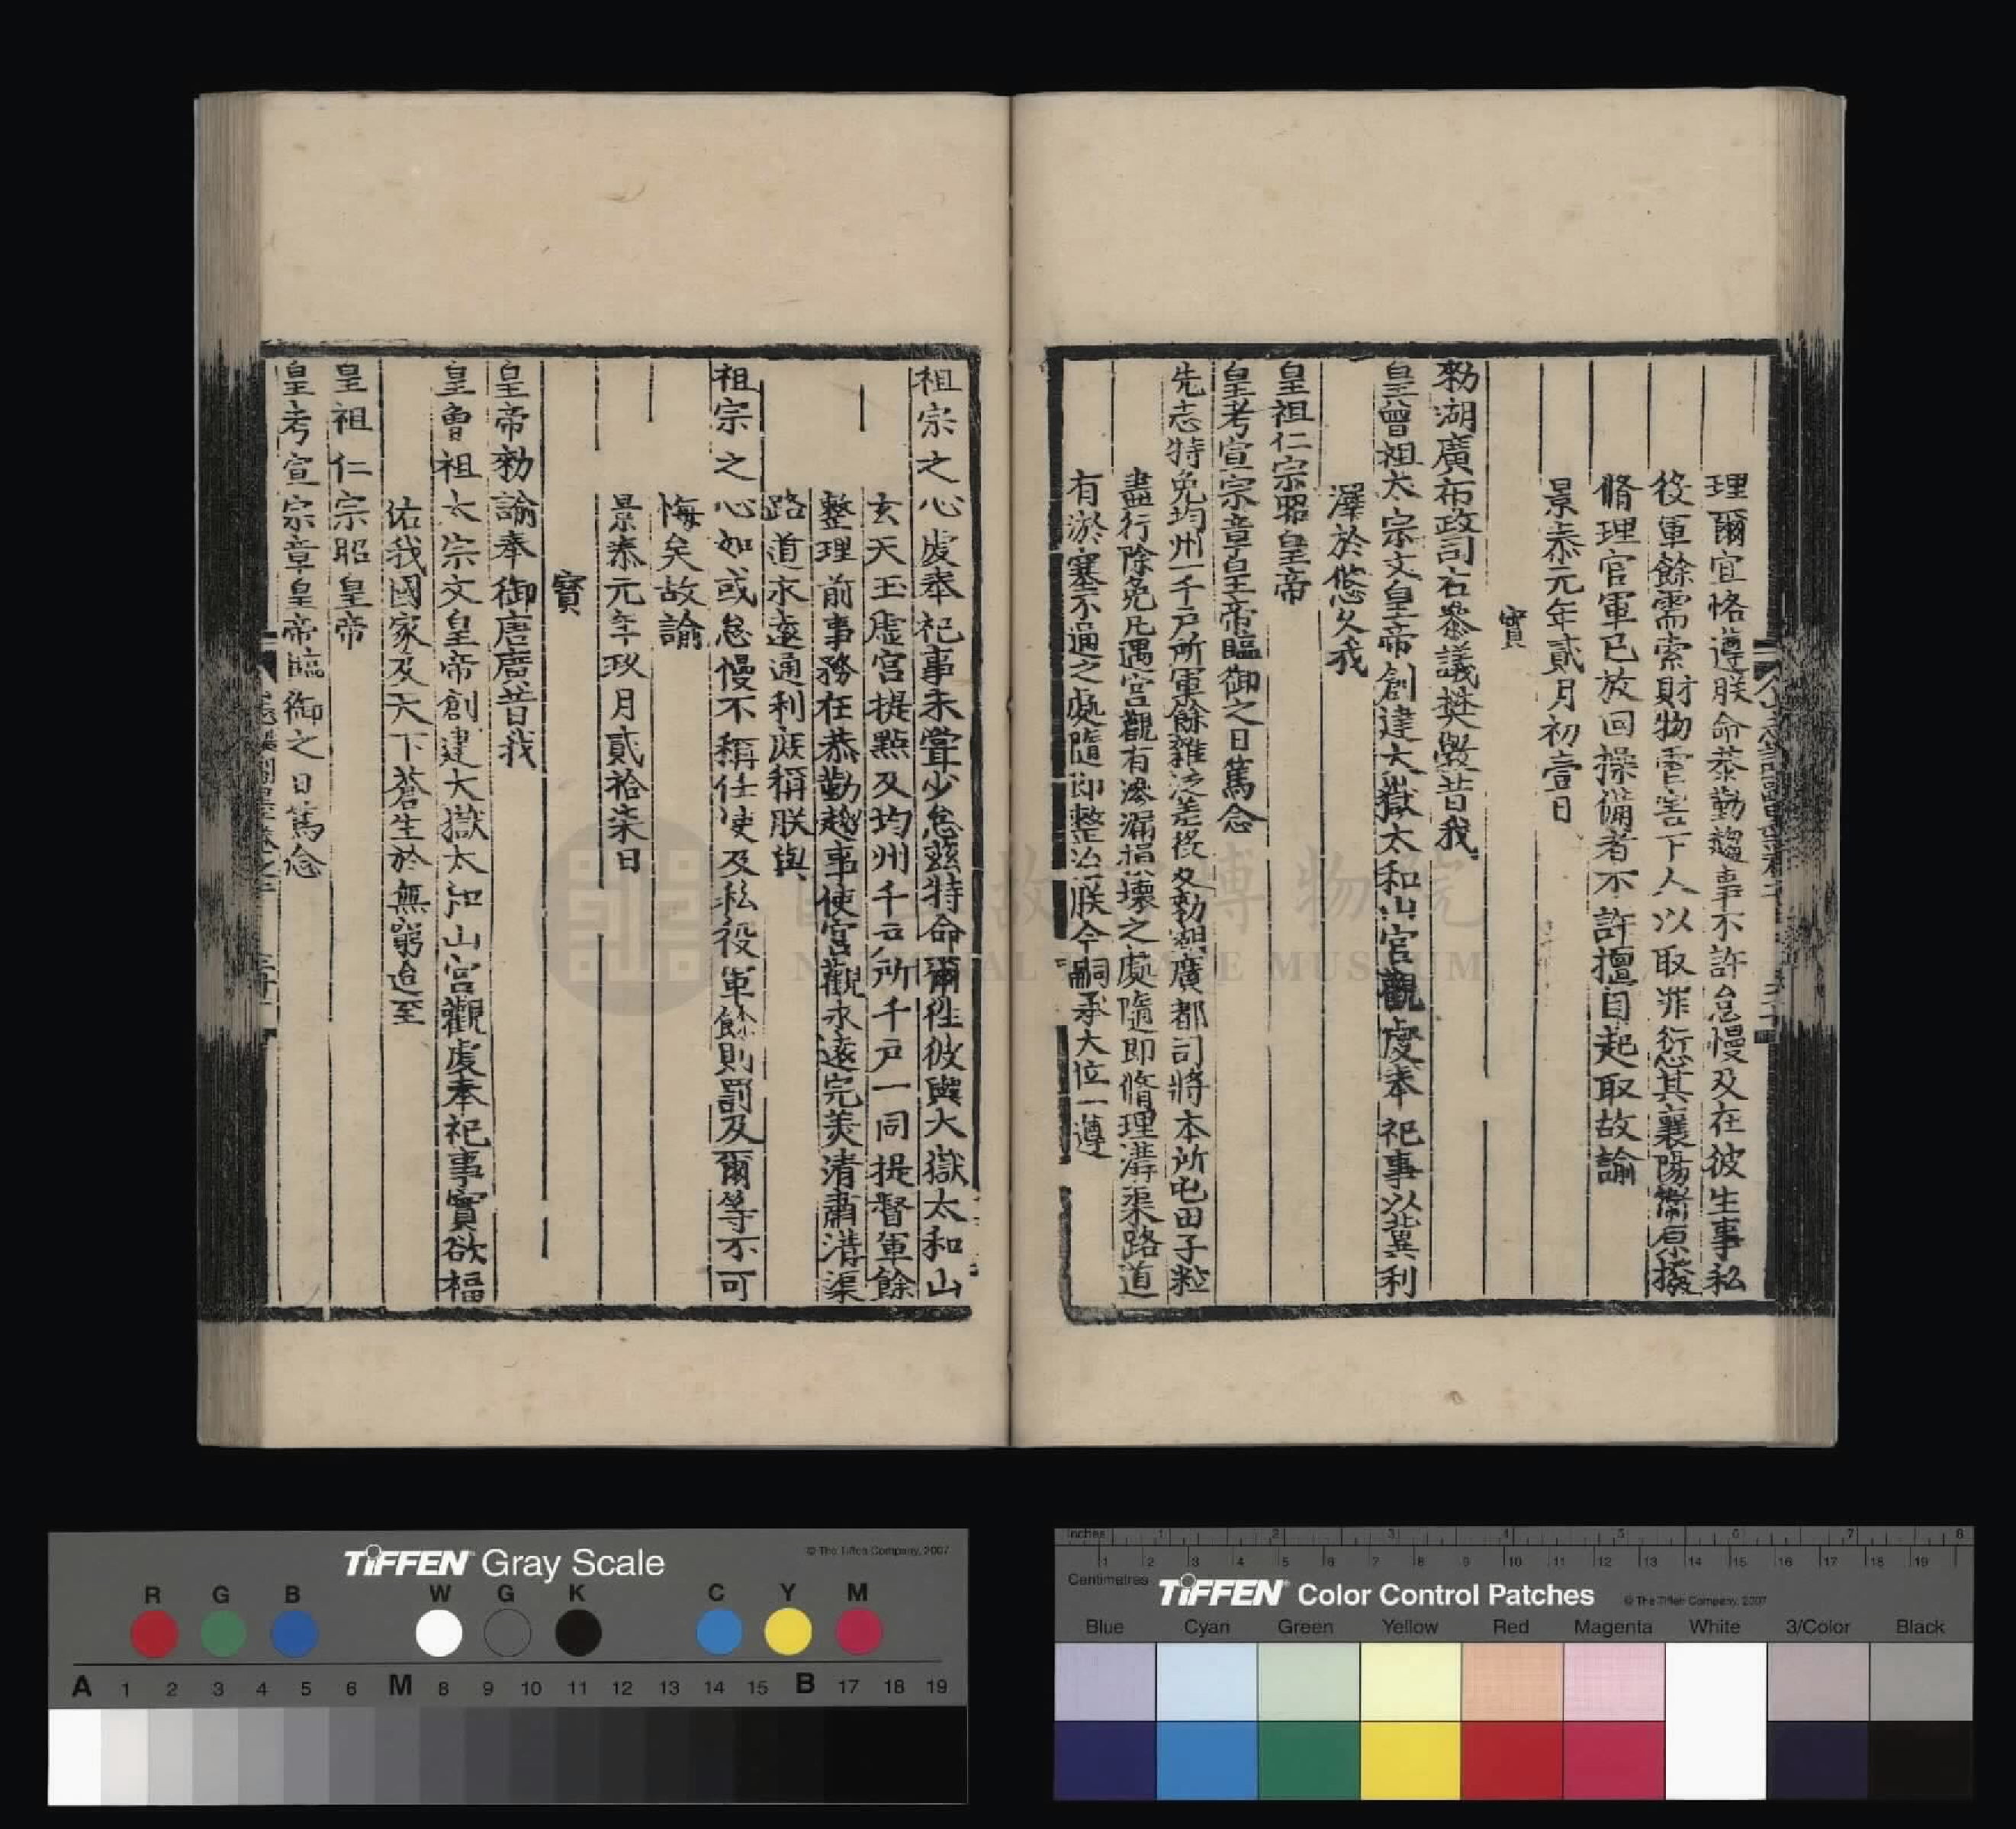 理爾宜恪遵朕命恭勤趨事不許怠慢及在彼生事私
役軍餘需索財物害下人以取罪愆其襄陽衛原撥
脩理官軍已放回操備者不許擅自起取故諭
景泰元年貳月初壹日
寶
勑湖廣布政司右叅議樊毅昔我
皇曾祖太宗文皇帝創建大嶽太和山宮觀虔奉祀事以冀利
澤於悠久我
皇祖仁宗昭皇帝
皇考宣宗章皇帝臨御之日篤念
先志特免均州千戶所軍餘雜泛差役及勑湖廣都司將本所屯田子粒
盡行除免凡遇宮觀有滲漏損壞之處隨即脩理溝渠路道
有淤塞不通之處隨即整治朕今嗣承大位一遵
祖宗之心虔奉祀事未嘗少怠茲特命爾徃彼與大嶽太和山
玄天玉虛宮提點及均州千戶所千戶一同提督軍餘
整理前事務在恭勤趍事使宮觀永遠完美清肅溝渠
路道永遠通利庻稱朕與
祖宗之心如或怠慢不稱任使及私役軍餘則罰及爾等不可
悔矣故諭
景泰元年玖月貳拾柒日
寶
皇帝勑諭奉御唐廣昔我
皇曾祖太宗文皇帝創建大嶽太和山宮觀虔奉祀事實欲福
佑我國家及天下蒼生於無窮迨至
皇祖仁宗昭皇帝
皇考宣宗章皇帝臨御之日篤念
NATIONAL PALACE MUSEUM
TIFFEN Gray Scale
© The Tiffen Company, 2007
R G B W G K C Y M
A 1 2 3 4 5 6 M 8 9 10 11 12 13 14 15 B 17 18 19
Inches 1 2 3 4 5 6 7 8
1 2 3 4 5 6 7 8 9 10 11 12 13 14 15 16 17 18 19
Centimetres
TIFFEN Color Control Patches
© The Tiffen Company, 2007
Blue Cyan Green Yellow Red Magenta White 3/Color Black